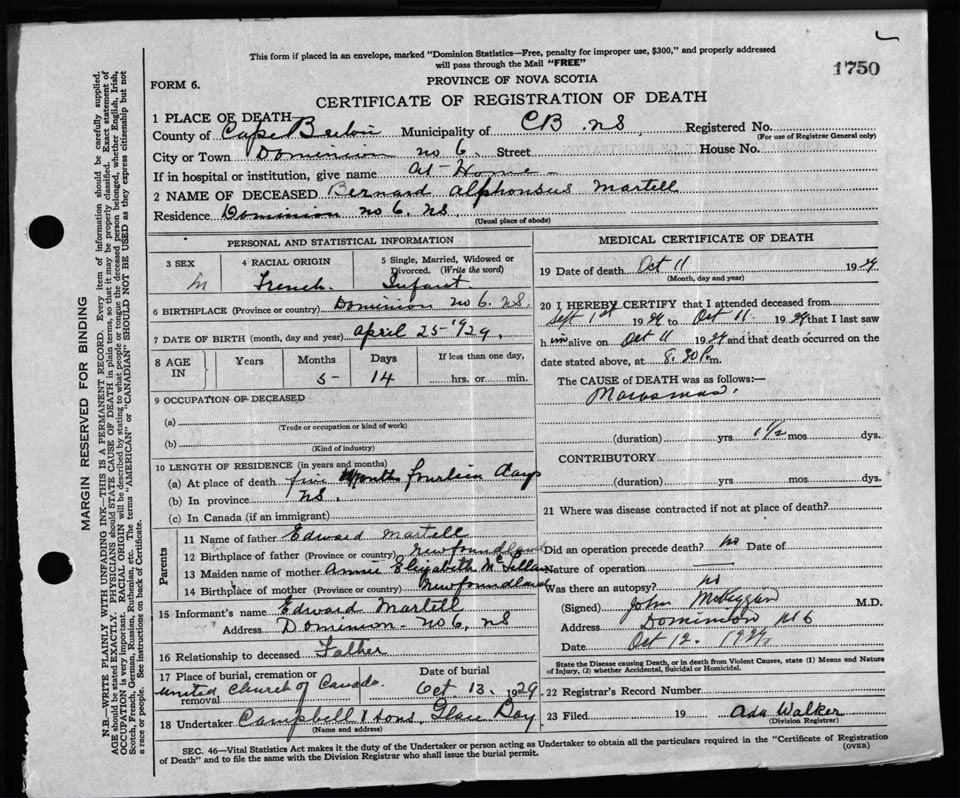 This form if placed in an envelope, marked "Dominion Statistics—Free, penalty for improper use, $300," and properly addressed
will pass through the Mail "FREE"
1750
FORM 6.
PROVINCE OF NOVA SCOTIA
CERTIFICATE OF REGISTRATION OF DEATH
1 PLACE OF DEATH
County of Cape Breton Municipality of CB. NS Registered No.
(For use of Registrar General only)
City or Town Dominion No 6. Street House No.
If in hospital or institution, give name at Home
2 NAME OF DECEASED Bernard Alphonsus Martell
Residence Dominion No 6. NS.
(Usual place of abode)
PERSONAL AND STATISTICAL INFORMATION
3 SEX 4 RACIAL ORIGIN 5 Single, Married, Widowed or
Divorced. (Write the word)
M French. Infant
6 BIRTHPLACE (Province or country) Dominion No 6. NS.
7 DATE OF BIRTH (month, day and year) April 25-1929.
8 AGE IN Years Months Days If less than one day,
5- 14 hrs. or min.
9 OCCUPATION OF DECEASED
(a)
(Trade or occupation or kind of work)
(b)
(Kind of industry)
10 LENGTH OF RESIDENCE (in years and months)
(a) At place of death five Month fourteen days
(b) In province NS.
(c) In Canada (if an immigrant)
Parents
11 Name of father Edward Martell
12 Birthplace of father (Province or country) Newfoundland
13 Maiden name of mother Annie Elizabeth
14 Birthplace of mother (Province or country) Newfoundland
15 Informant's name Edward Martell
Address Dominion- No 6, NS
16 Relationship to deceased Father
17 Place of burial, cremation or Date of burial
removal United Church of Canada. Oct 13. 1929.
18 Undertaker Campbell & Sons. Glace Bay
(Name and address)
MEDICAL CERTIFICATE OF DEATH
19 Date of death Oct 11 1929
(Month, day and year)
20 I HEREBY CERTIFY that I attended deceased from
Sept 1st 1929 to Oct 11. 1929 that I last saw
him alive on Oct 11 1929 and that death occurred on the
date stated above, at 8.30 P.m.
The CAUSE of DEATH was as follows:—
Marasmus.
(duration) yrs 1 1/2 mos dys.
CONTRIBUTORY
(duration) yrs mos dys.
21 Where was disease contracted if not at place of death?
Did an operation precede death? No Date of
Nature of operation
Was there an autopsy? No
(Signed) John McKeggan M.D.
Address Dominion No 6
Date Oct 12. 1929
State the Disease causing Death, or in death from Violent Causes, state (1) Means and Nature
of Injury, (2) whether Accidental, Suicidal or Homicidal.
22 Registrar's Record Number
23 Filed 19 Ada Walker
(Division Registrar)
SEC. 46—Vital Statistics Act makes it the duty of the Undertaker or person acting as Undertaker to obtain all the particulars required in the "Certificate of Registration
of Death" and to file the same with the Division Registrar who shall issue the burial permit.
(OVER)
MARGIN RESERVED FOR BINDING
N.B.—WRITE PLAINLY WITH UNFADING INK—THIS IS A PERMANENT RECORD. Every item of information should be carefully supplied.
AGE should be stated EXACTLY. PHYSICIANS should STATE CAUSE OF DEATH in plain terms, so that it may be properly classified. Exact statement of
OCCUPATION is very important. RACIAL ORIGIN will be described by stating to what people or tongue the deceased person belonged, whether English, Irish,
Scotch, French, German, Russian, Ruthenian, etc. The terms "AMERICAN" or "CANADIAN" SHOULD NOT BE USED as they express citizenship but not
a race or people. See instructions on back of Certificate.